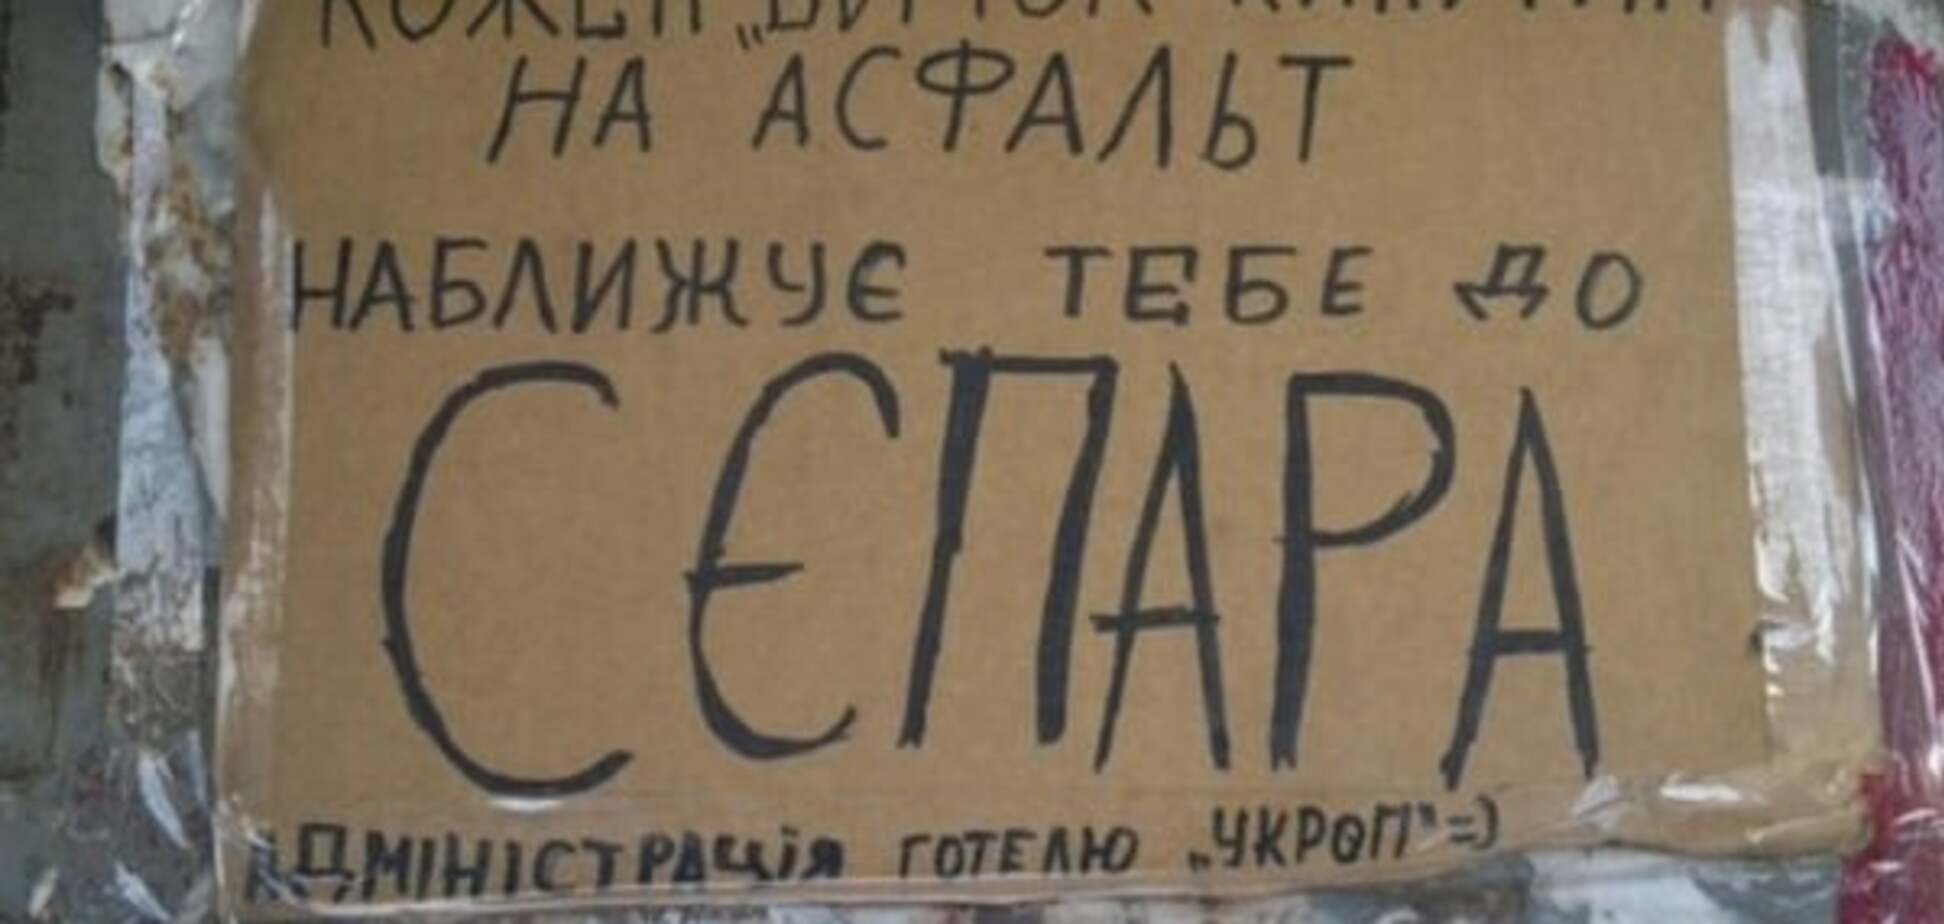 КОЖЕН „БИЧОК" КИНУТИЙ
НА АСФАЛЬТ
НАБЛИЖУЄ ТЕБЕ ДО
СЄПАРА
АДМІНІСТРАЦІЯ ГОТЕЛЮ „УКРОП"=)